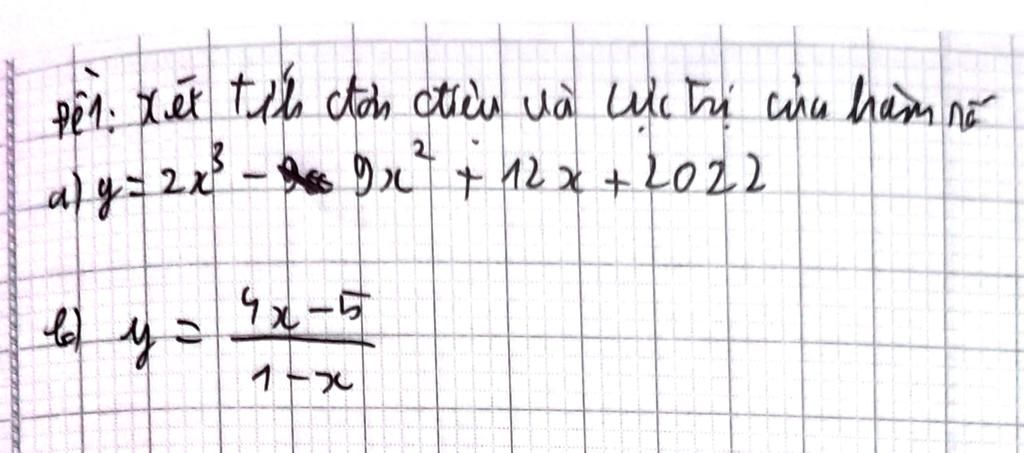 Đề 1: xét tính đơn điệu và cực trị của hàm số
a) y = 2x³ - 9x² + 12x + 2022
b) y = \frac{4x-5}{1-x}